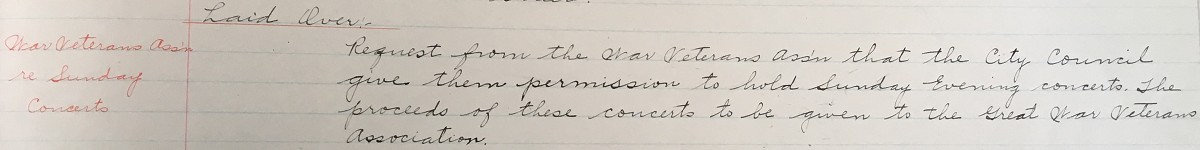 Laid Over:-
War Veterans Ass'n
re Sunday
Concerts
Request from the War Veterans Ass'n that the City Council
give them permission to hold Sunday Evening concerts. The
proceeds of these concerts to be given to the Great War Veterans
Association.